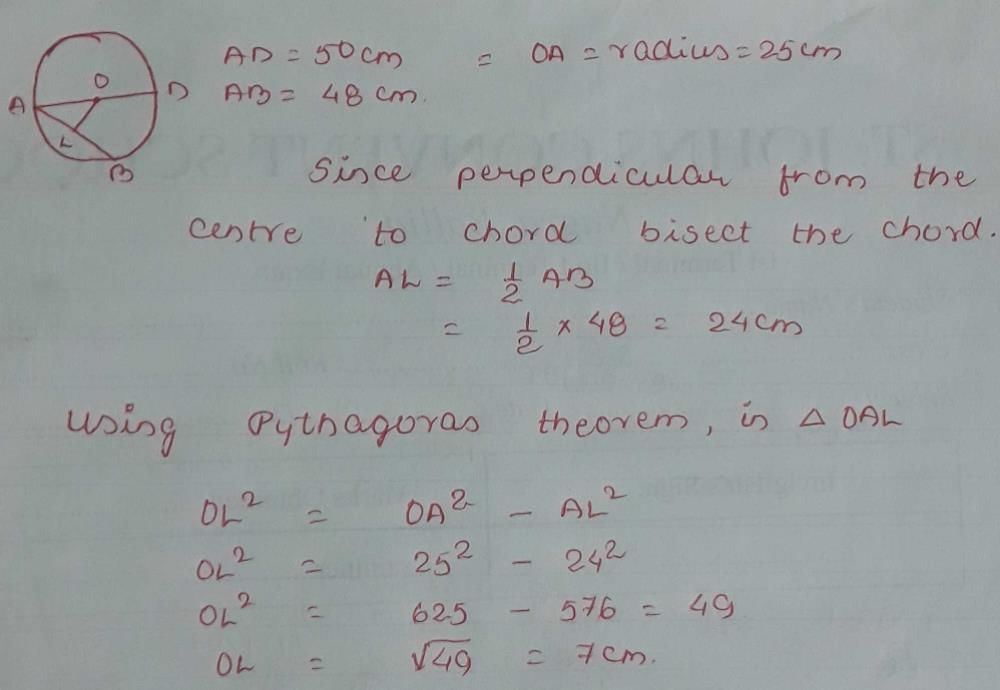 AD = 50 cm = OA = radius = 25 cm
AB = 48 cm.
O
A
D
L
B
Since perpendicular from the
centre to chord bisect the chord.
AL = 1/2 AB
= 1/2 × 48 = 24 cm
Using Pythagoras theorem, in △ OAL
OL² = OA² - AL²
OL² = 25² - 24²
OL² = 625 - 576 = 49
OL = √49 = 7 cm.